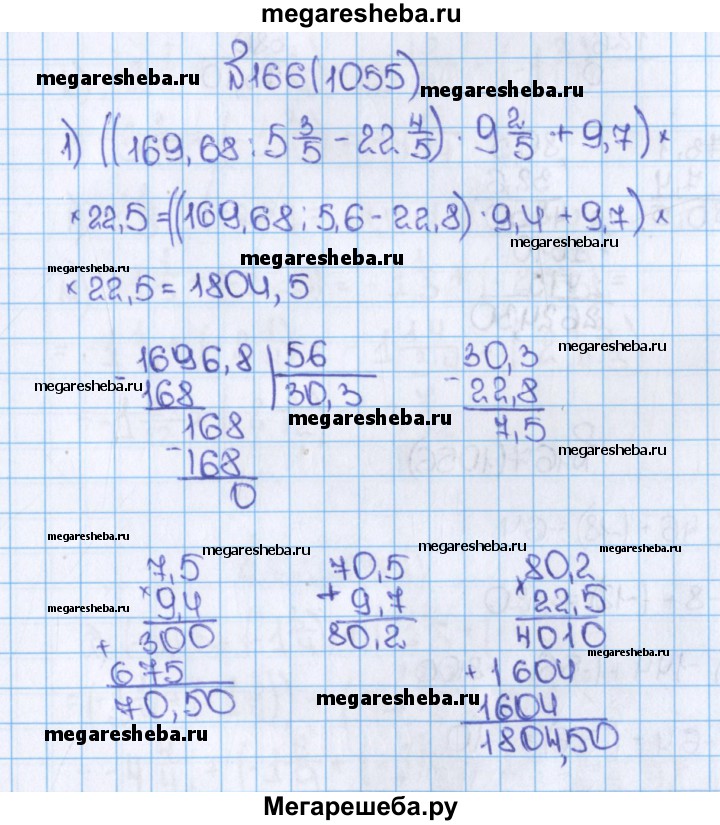 megaresheba.ru
№166(1055)
megaresheba.ru
megaresheba.ru
1) ((169,68 : 5 3/5 - 22 4/5) · 9 2/5 + 9,7) ×
× 22,5 = ((169,68 : 5,6 - 22,8) · 9,4 + 9,7) ×
megaresheba.ru
megaresheba.ru
megaresheba.ru
× 22,5 = 1804,5
1696,8 | 56
- 168
30,3
168
- 168
0
30,3
- 22,8
7,5
megaresheba.ru
megaresheba.ru
megaresheba.ru
megaresheba.ru
megaresheba.ru
megaresheba.ru
megaresheba.ru
megaresheba.ru
7,5
× 9,4
+ 300
675
70,50
70,5
+ 9,7
80,2
80,2
× 22,5
4010
+ 1604
1604
1804,50
megaresheba.ru
megaresheba.ru
megaresheba.ru
megaresheba.ru
Мегарешеба.ру